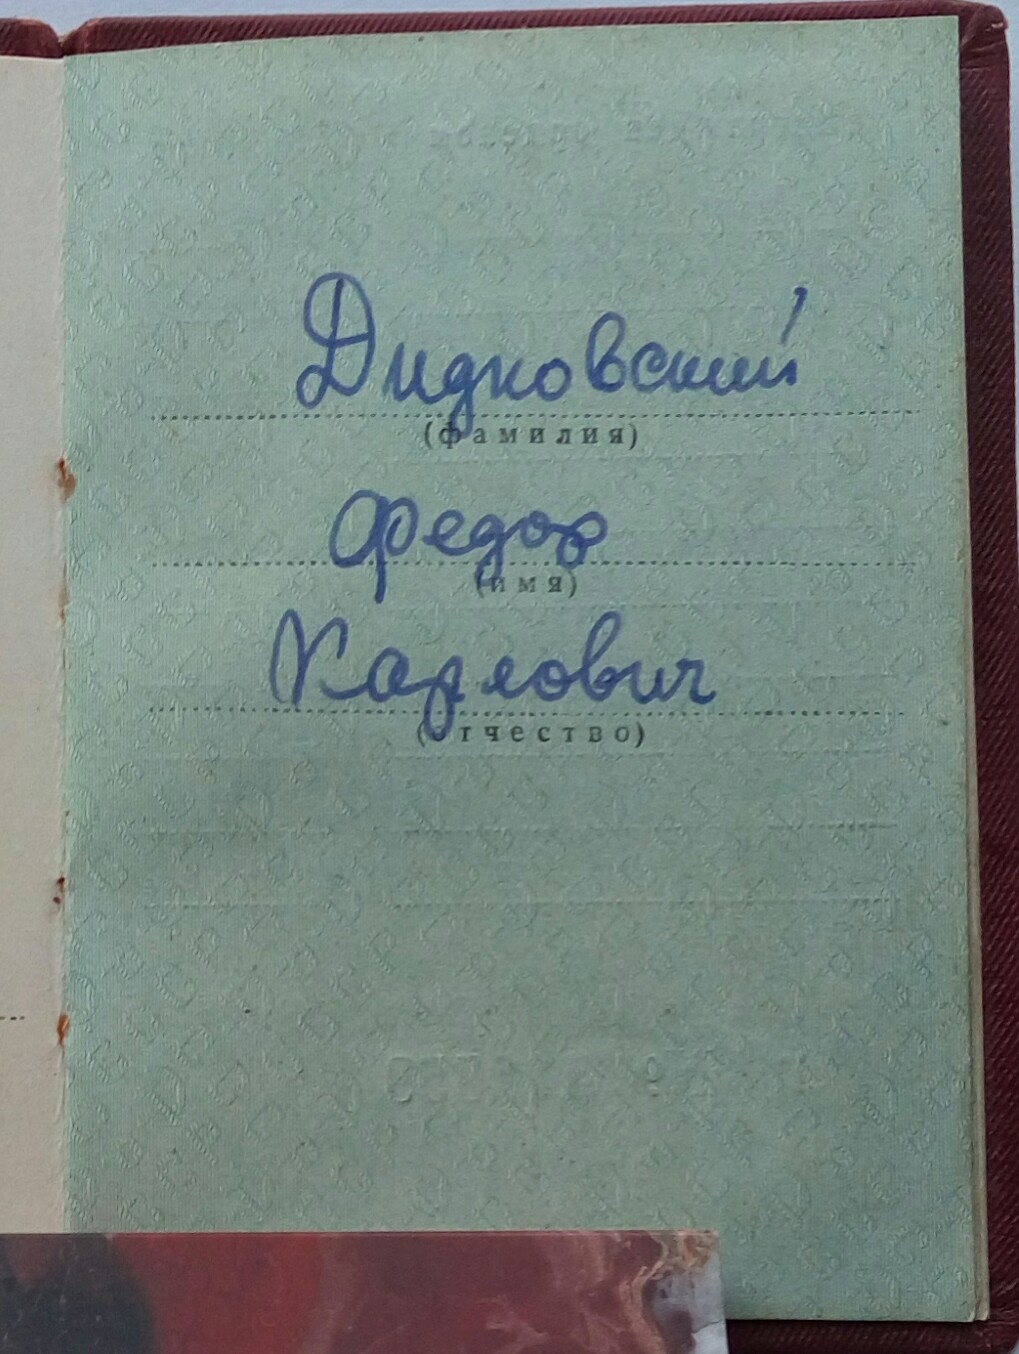 Дидковский
(фамилия)
Федор
(имя)
Карлович
(отчество)